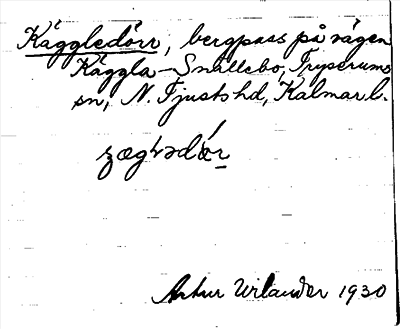 Käggledörr, bergpass på vägen
Käggla - Snällebo, Tryserums
sn, N. Tjusts hd, Kalmar l.
Artur Urlander 1930